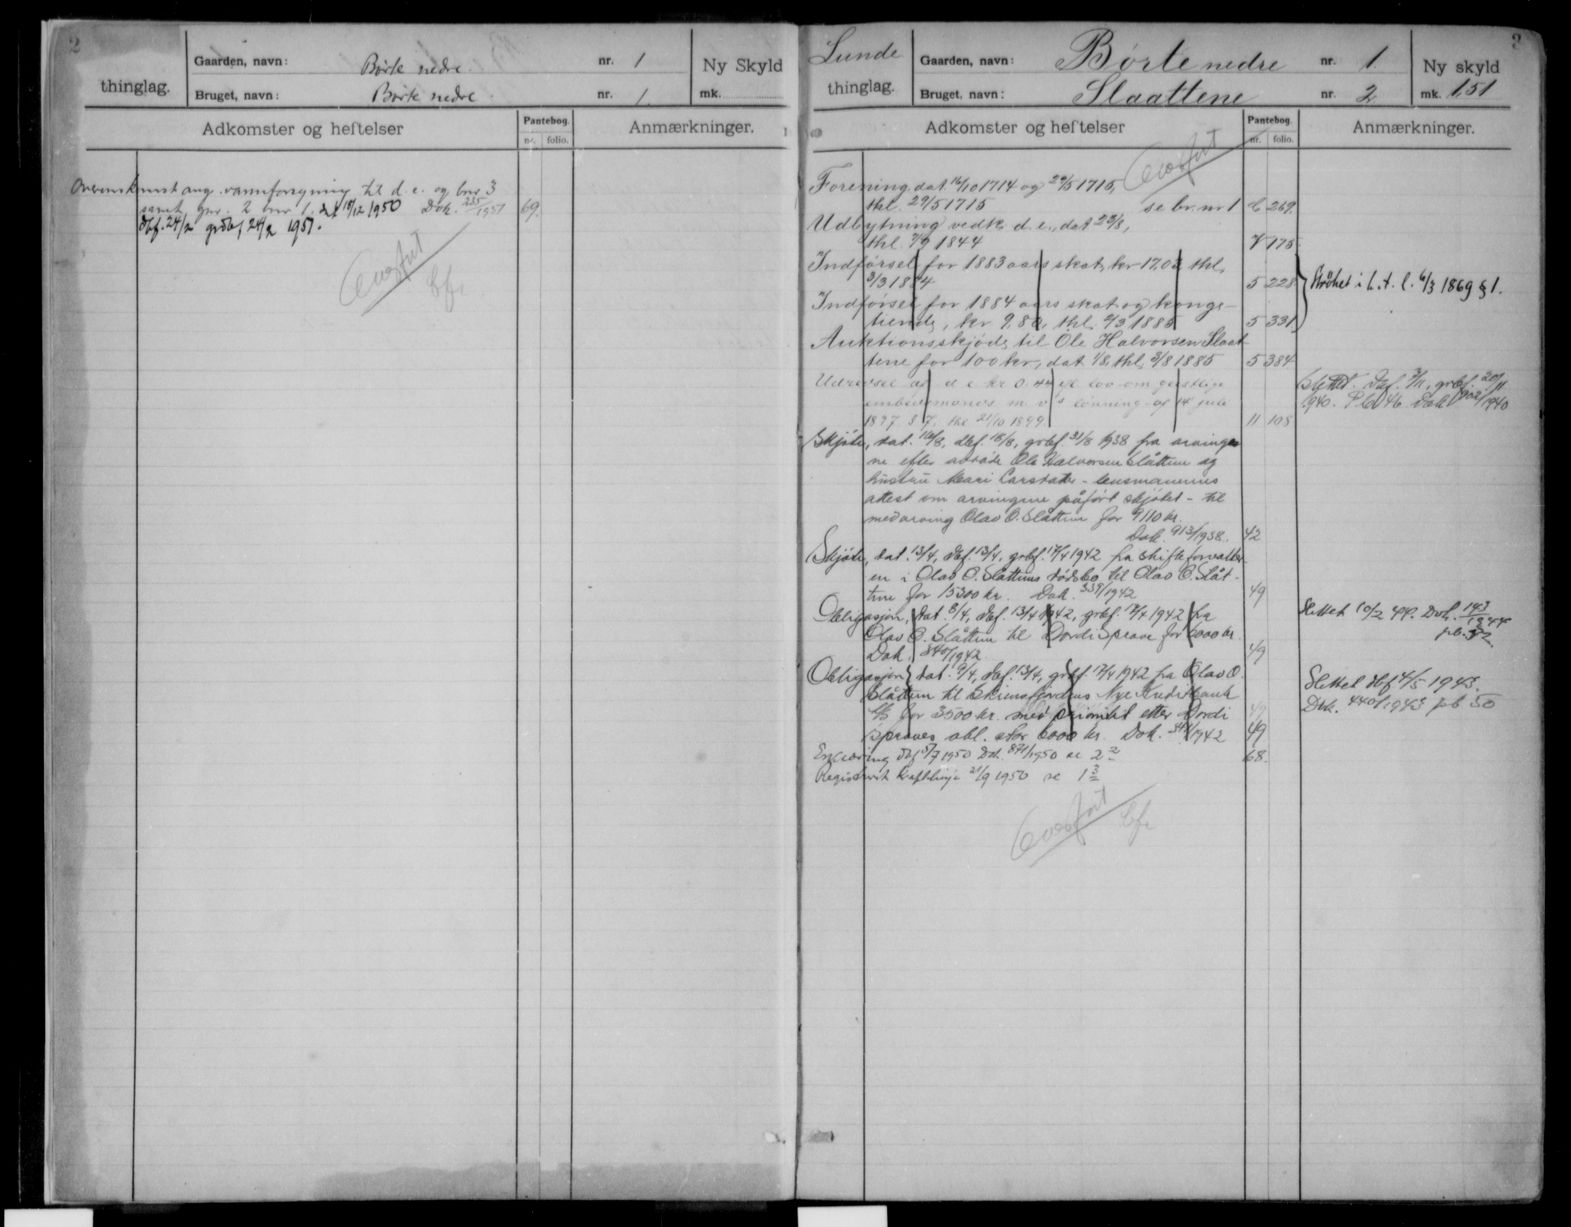 2
thinglag.
Gaarden, navn: Børte nedre. nr. 1
Bruget, navn: Børte nedre nr. 1.
Ny Skyld
mk.
Adkomster og heftelser
Pantebog.
nr. folio.
Anmærkninger.
Overenskomst ang. vannforsyning til d. e. og bnr 3
samt gnr. 2 bnr 1. dat 18/12 1950 Dok. 235/1951 69.
dbf. 24/2 grbf 24/2 1951.
Overført
3
Lunde
thinglag.
Gaarden, navn: Børte nedre nr. 1
Bruget, navn: Slaattene nr. 2
Ny skyld
mk. 1,51
Adkomster og heftelser
Pantebog.
nr. folio.
Anmærkninger.
Overført
Forening dat 16/10 1714 og 29/5 1715,
thl. 29/5 1715 se br. nr 1 C 269.
Udbytning vedk. d. e., dat 23/8,
thl. 7/9 1844 7 775
Indførsel for 1883 aars skat, kr 17,03 thl,
3/3 1884 5 228
Strøket i h. t. l. 6/3 1869 § 1.
Indførsel for 1884 aars skat og konge-
tiende, kr 9,82, thl. 2/3 1885 5 331
Auktionsskjøde til Ole Halvorsen Slaat-
tene for 100 kr, dat 1/8, thl. 3/8 1885 5 384
Udredsel af d e kr 0. lov om geistlige
embedsmænds m. v's lønning af 14 juli
1897 § 7, thl 21/10 1899 11 108
Slettet. Dbf. grbf. 20/11
1940. Pb 46. Dok 902/1940
Skjøte, dat. 16/8, dbf. 18/8, grbf. 31/8 1938 fra arvinge-
ne efter avdøde Ole Halvorsen Slåttene og
hustru Mari Carstads - lensmannens
attest om arvingene påført skjøtet - til
medarving Olav O. Slåttene for 9110 kr.
Dok. 913/1938. 42
Skjøte, dat. 13/4, dbf. 13/4, grbf. 17/4 1942 fra skifteforvalter-
en i Olav O. Slåttenes dødsbo til Olav O. Slåt-
tene for 15300 kr. Dok. 339/1942 49
Obligasjon, dat. 8/4, dbf. 13/4 1942, grbf. 17/4 1942 fra
Olav O. Slåttene til Dordi Sprave for 6000 kr.
Dok. 340/1942 49
Slettet 10/2 44. Dok. 143/1944
pb. 52
Obligasjon, dat. 9/4, dbf. 13/4, grbf. 17/4 1942 fra Olav O.
Slåttene til Skiensfjordens Nye Kreditbank
A/S for 3500 kr. med prioritet etter Dordi 49
Spraves obl. stor 6000 kr. Dok. 341/1942 49
Slettet dbf 4/5 1943.
Dok. 440/1943 pb 50
Erklæring dbf 5/7 1950 Dok. 871/1950 se 2 2 68.
Registrert kraftlinje 21/9 1950 se 1 3
Overført